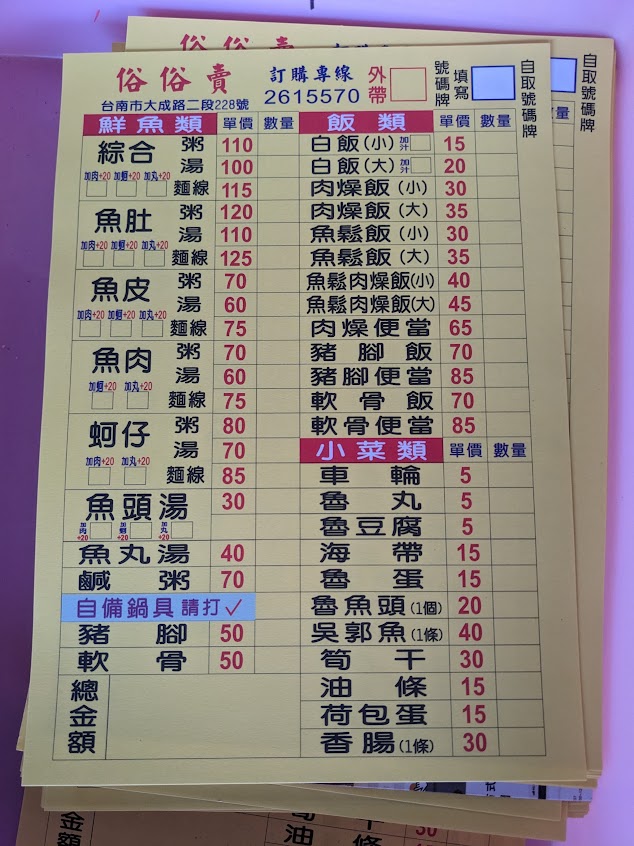 俗俗賣 訂購專線 外帶 號碼牌 填寫 自取號碼牌
台南市大成路二段228號 2615570
鮮魚類 單價 數量
綜合 粥 110
湯 100
加肉+20 加蚵+20 加丸+20 麵線 115
魚肚 粥 120
湯 110
加肉+20 加蚵+20 加丸+20 麵線 125
魚皮 粥 70
湯 60
加肉+20 加蚵+20 加丸+20 麵線 75
魚肉 粥 70
湯 60
加蚵+20 加丸+20 麵線 75
蚵仔 粥 80
湯 70
加肉+20 加丸+20 麵線 85
魚頭湯 30
加肉+20 加蚵+20 加丸+20
魚丸湯 40
鹹粥 70
自備鍋具 請打✓
豬腳 50
軟骨 50
總金額
飯類 單價 數量
白飯(小) 加汁 15
白飯(大) 加汁 20
肉燥飯(小) 30
肉燥飯(大) 35
魚鬆飯(小) 30
魚鬆飯(大) 35
魚鬆肉燥飯(小) 40
魚鬆肉燥飯(大) 45
肉燥便當 65
豬腳飯 70
豬腳便當 85
軟骨飯 70
軟骨便當 85
小菜類 單價 數量
車輪 5
魯丸 5
魯豆腐 5
海帶 15
魯蛋 15
魯魚頭(1個) 20
吳郭魚(1條) 40
筍干 30
油條 15
荷包蛋 15
香腸(1條) 30
俗俗賣
自取號碼牌
數量
金額
油條